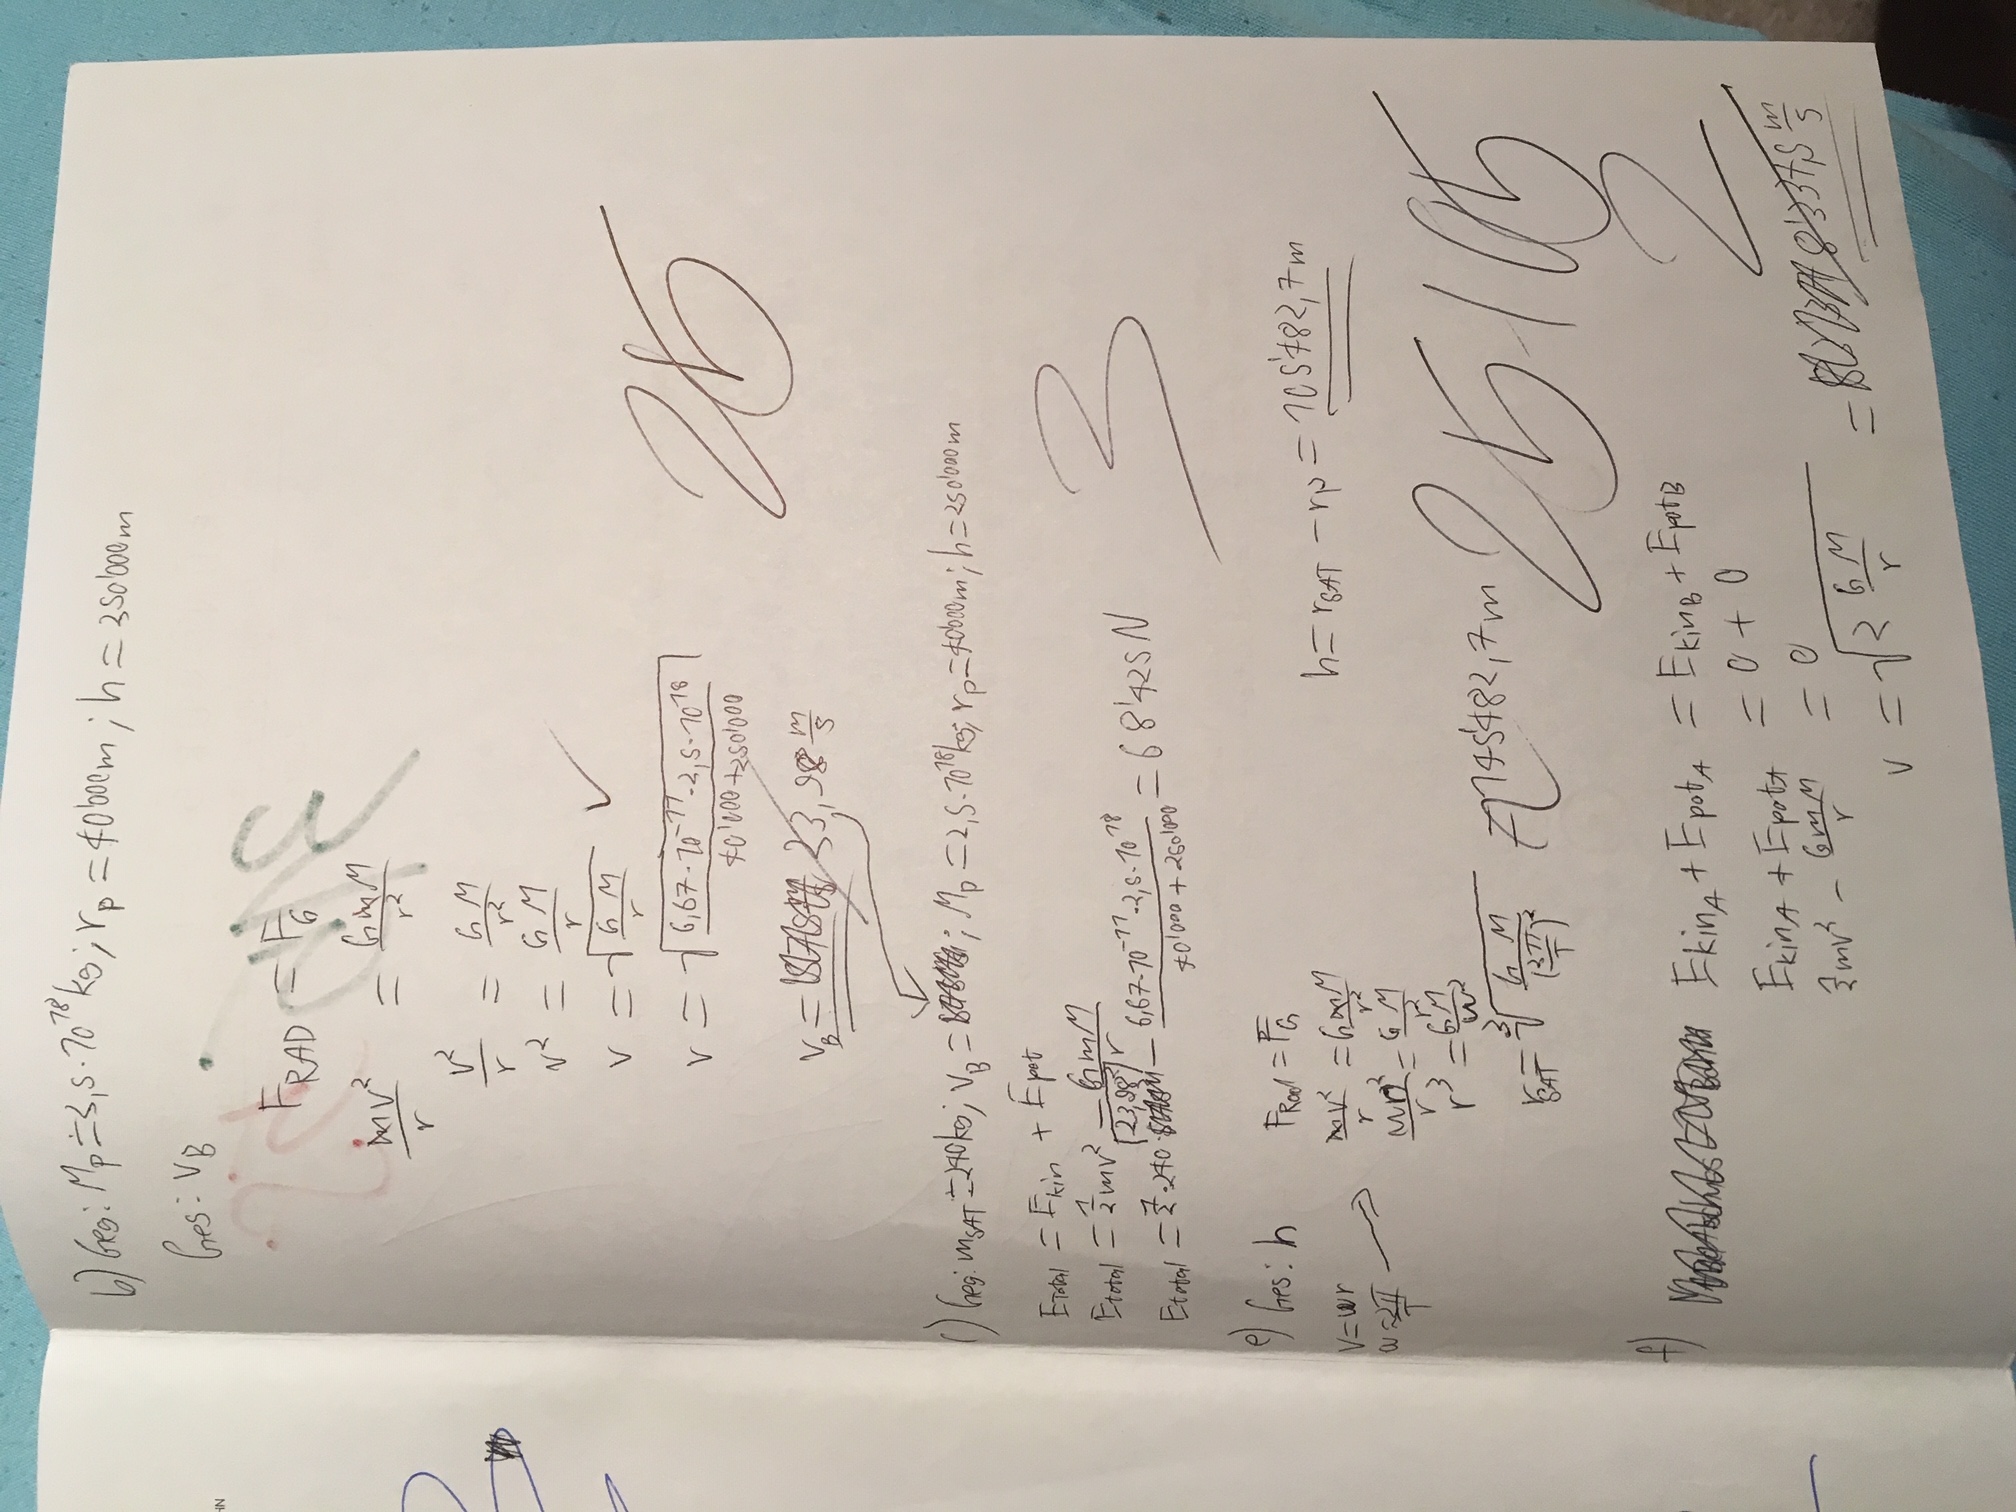 HN
b) Geg: Mp = 2,5·10^18 kg; rp = 40'000m; h = 250'000m
Ges: v_B
F_RAD = F_G
mv²/r = GmM/r²
v²/r = GM/r²
v² = GM/r
v = √(GM/r) ✓
v = √(6,67·10^-11·2,5·10^18/(40'000+250'000))
v_B = 23,98 m/s
25
c) Geg: m_SAT = 240kg; v_B = ; Mp = 2,5·10^18 kg; rp = 40'000m; h = 250'000m
E_Total = E_kin + E_pot
E_total = ½mv² - GmM/r
E_total = ½·240·(23,98)² - 6,67·10^-11·2,5·10^18/(40'000+250'000) = 68'425N
3
e) Ges: h
F_Rad = F_G
v = ωr
ω = 2π/T
mv²/r = GmM/r²
(ωr)²/r = GM/r²
r³ = GM/ω²
r_SAT = ³√(GM/(2π/T)²) = 145'482,7m
h = r_SAT - rp = 105'482,7m
25/05
f)
E_kinA + E_potA = E_kinB + E_potB
E_kinA + E_potA = 0 + 0
½mv² - GmM/r = 0
v = √(2 GM/r) = 8'337,5 m/s
2